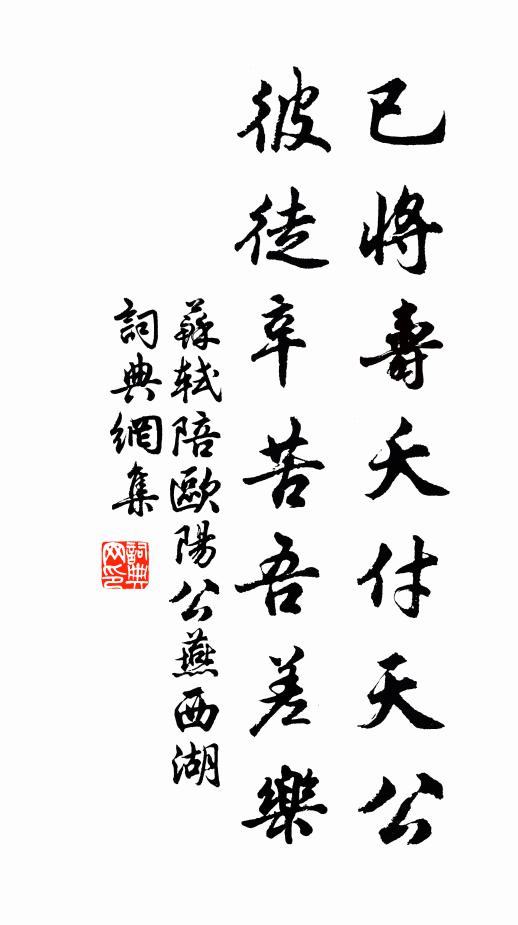 已將壽夭付天公
彼徒辛苦吾差樂
蘇軾陪歐陽公燕西湖
詞典網集
詞典
网印